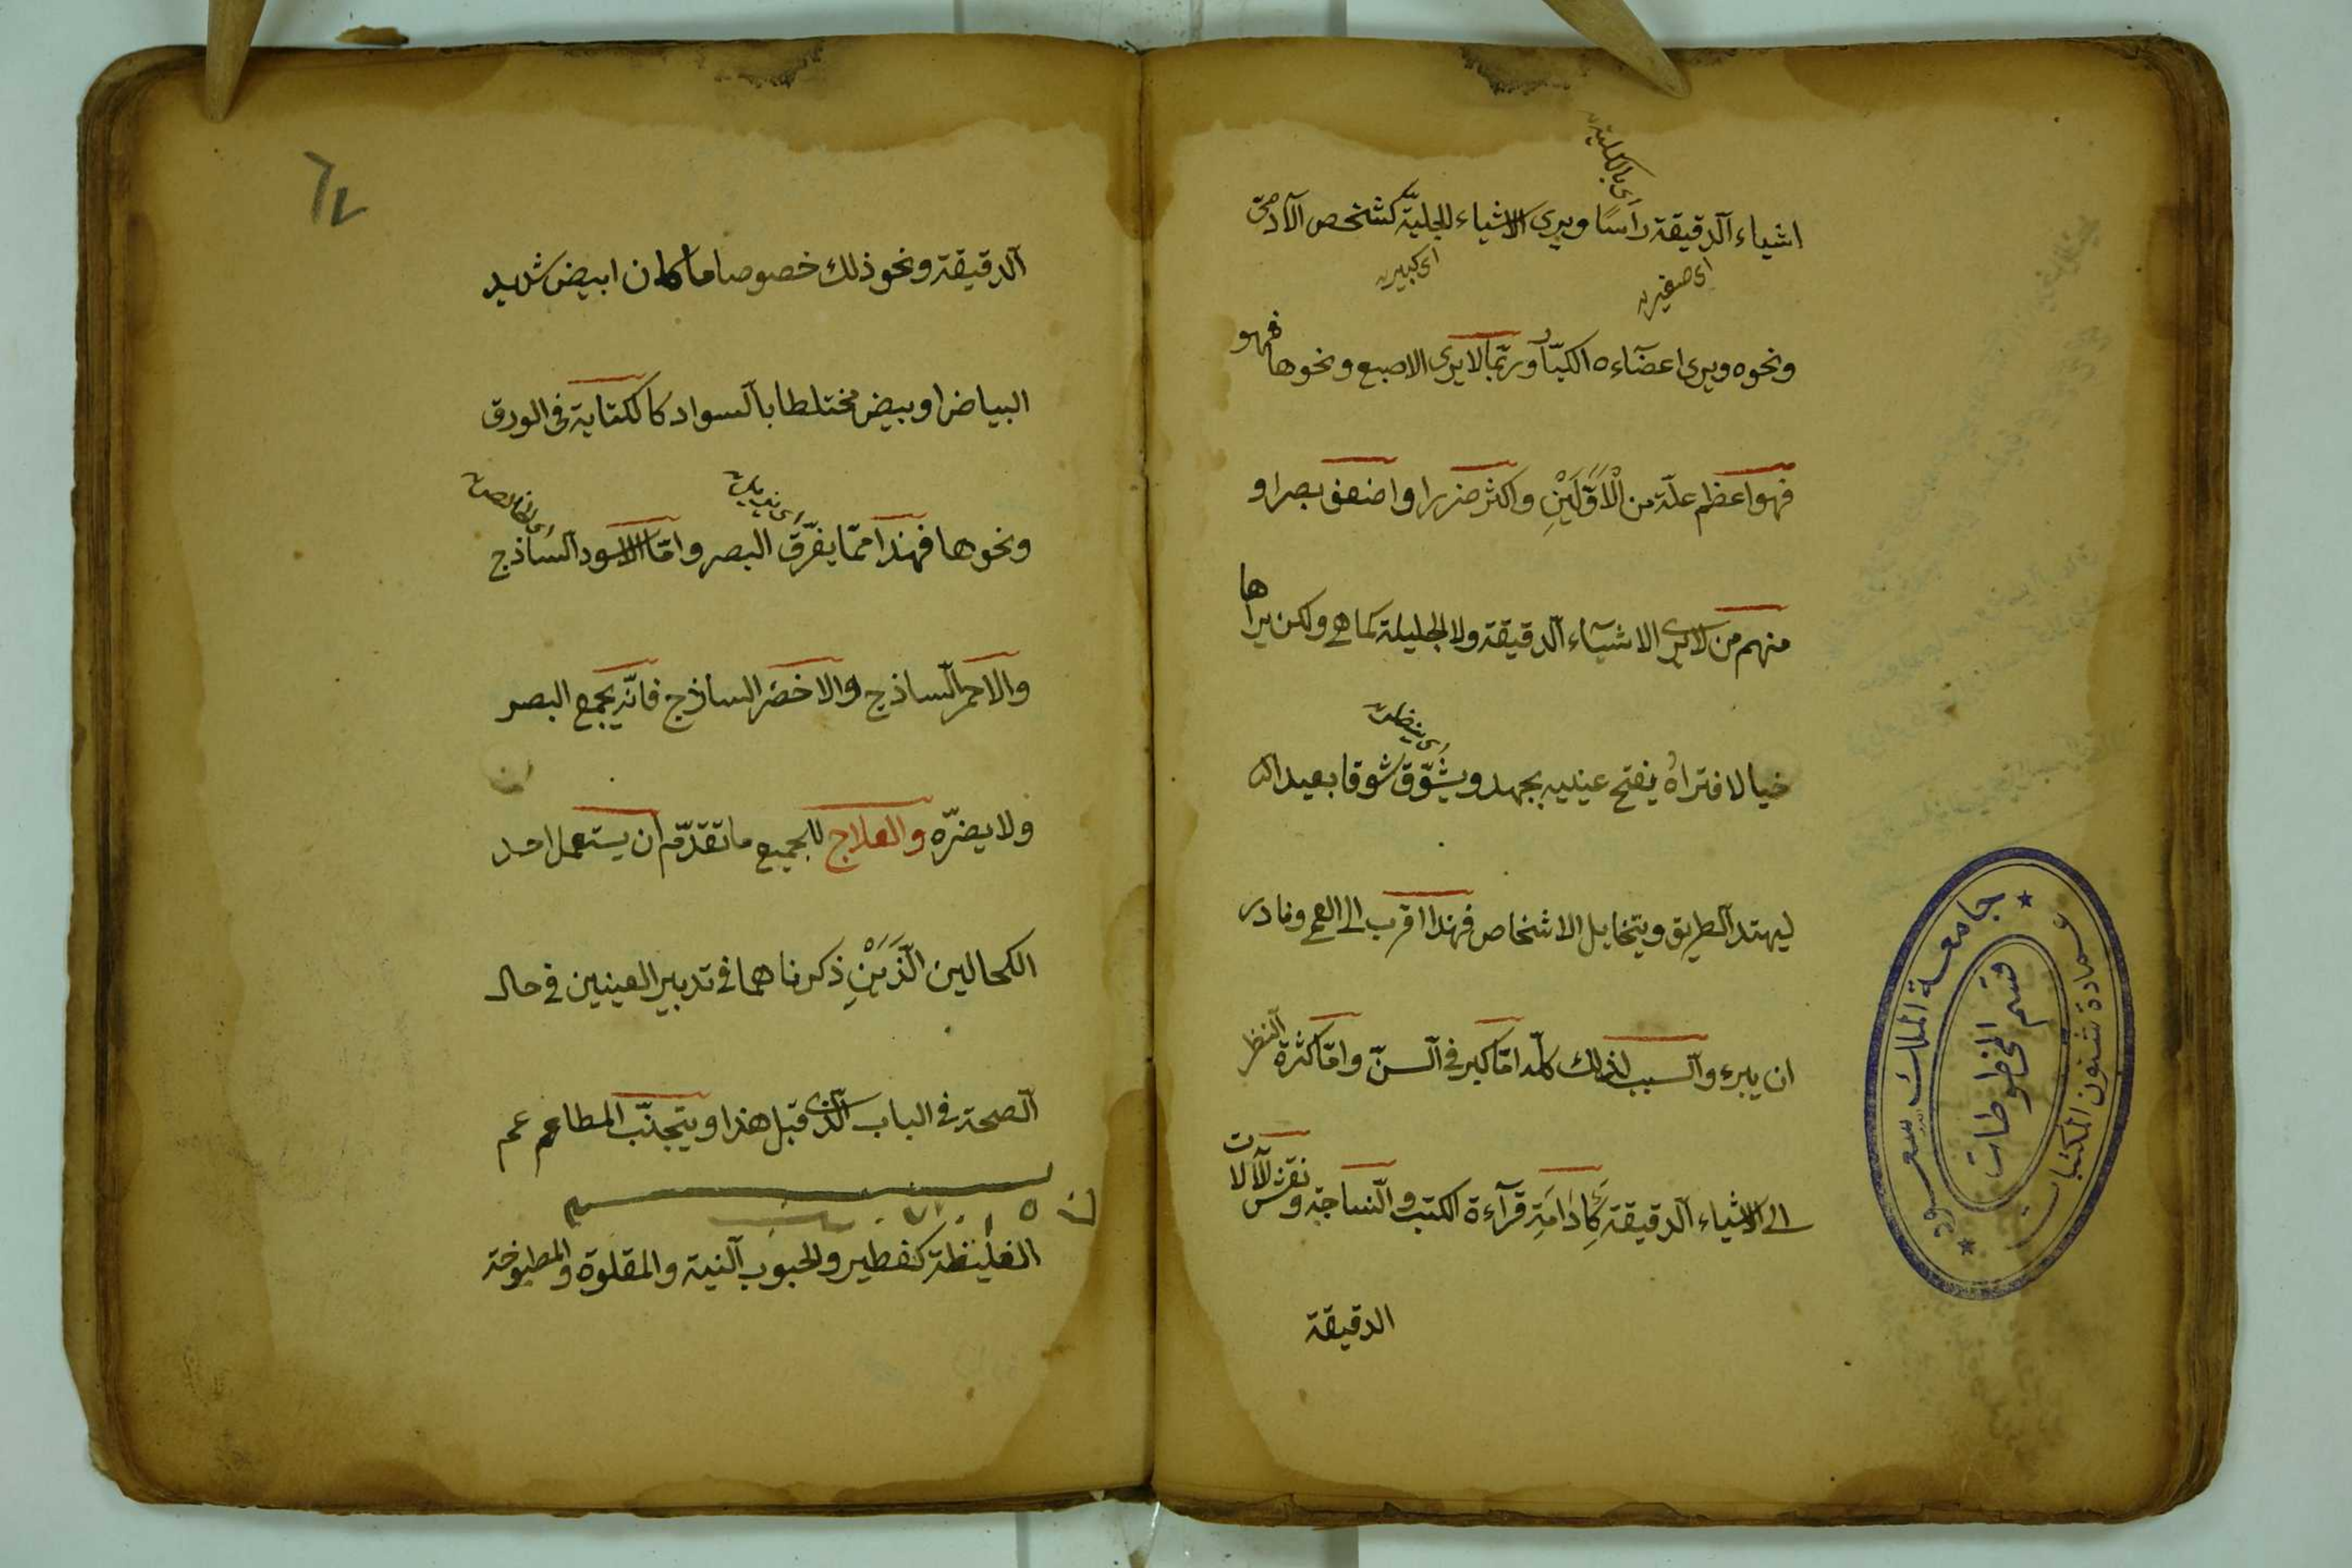 اى بالكلية
اشياء الدقيقة رأسًا ويرى الاشياء الجليّة كشخص الآدمىّ
اى صغيرة
اى كبيرة
ونحوه ويرى اعضآءه الكبّار وربّما لا يرى الاصبع ونحوها فهو
فهو اعظم علّة من الْاَوَّلَيْنِ واكثر ضررا واضعف بصرا و
منهم من لا يرى الاشيآء الدقيقة ولا الجليلة كما هى ولكن يراها
اى ينظر
خيالا فتراهُ يفتح عينيه بجهد ويشوّق شوقا بعيدا
ليهتد الطريق ويتخايل الاشخاص فهذا اقرب الى العمى ونادر
ان يبرء والسبب لذلك كلّه امّا كبر فى السنّ وامّا كثرة النظر
الى الاشياء الدقيقة كَاِدَامَةِ قرآءة الكتب والنساجة ونقش الآلات
الدقيقة
جامعة الملك سعود
قسم المخطوطات
عمادة شئون المكتبات
٦٧
الدقيقة ونحو ذلك خصوصا ما كان ابيض شديد
البياض او بيض مختلطا بالسواد كالكتابة فى الورق
اى الخالصة
ونحوها فهذا ممّا يفرّق البصر وامّا الاسود الساذج
والاحمر الساذج والاخضر الساذج فانّه يجمع البصر
ولا يضرّه والعلاج للجميع ما تقدّم ان يستعمل احد
الكحالين الّذَيْنِ ذكرناهما فى تدبير العينين فى حال
الصحة فى الباب الّذى قبل هذا ويتجنّب المطاعم
الغليظة كفطير والحبوب النية والمقلوة والمطبوخة